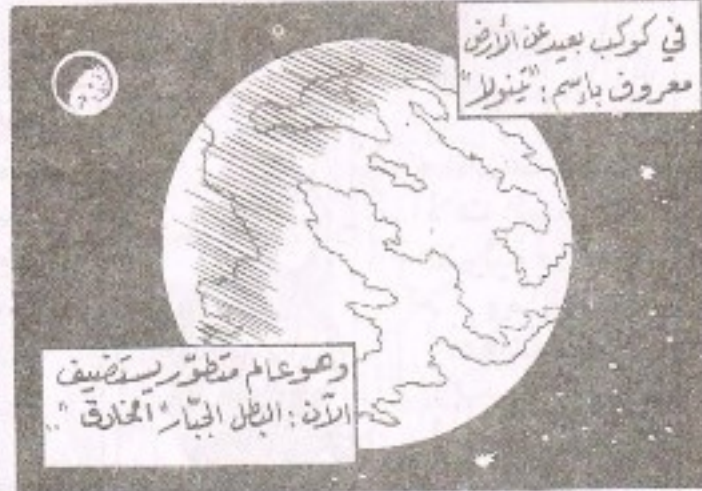 في كوكب بعيد عن الأرض
معروف بإسم: "تينولا"
وهو عالم متطوّر يستضيف
الآن: البطل الجبّار "الخارق"..